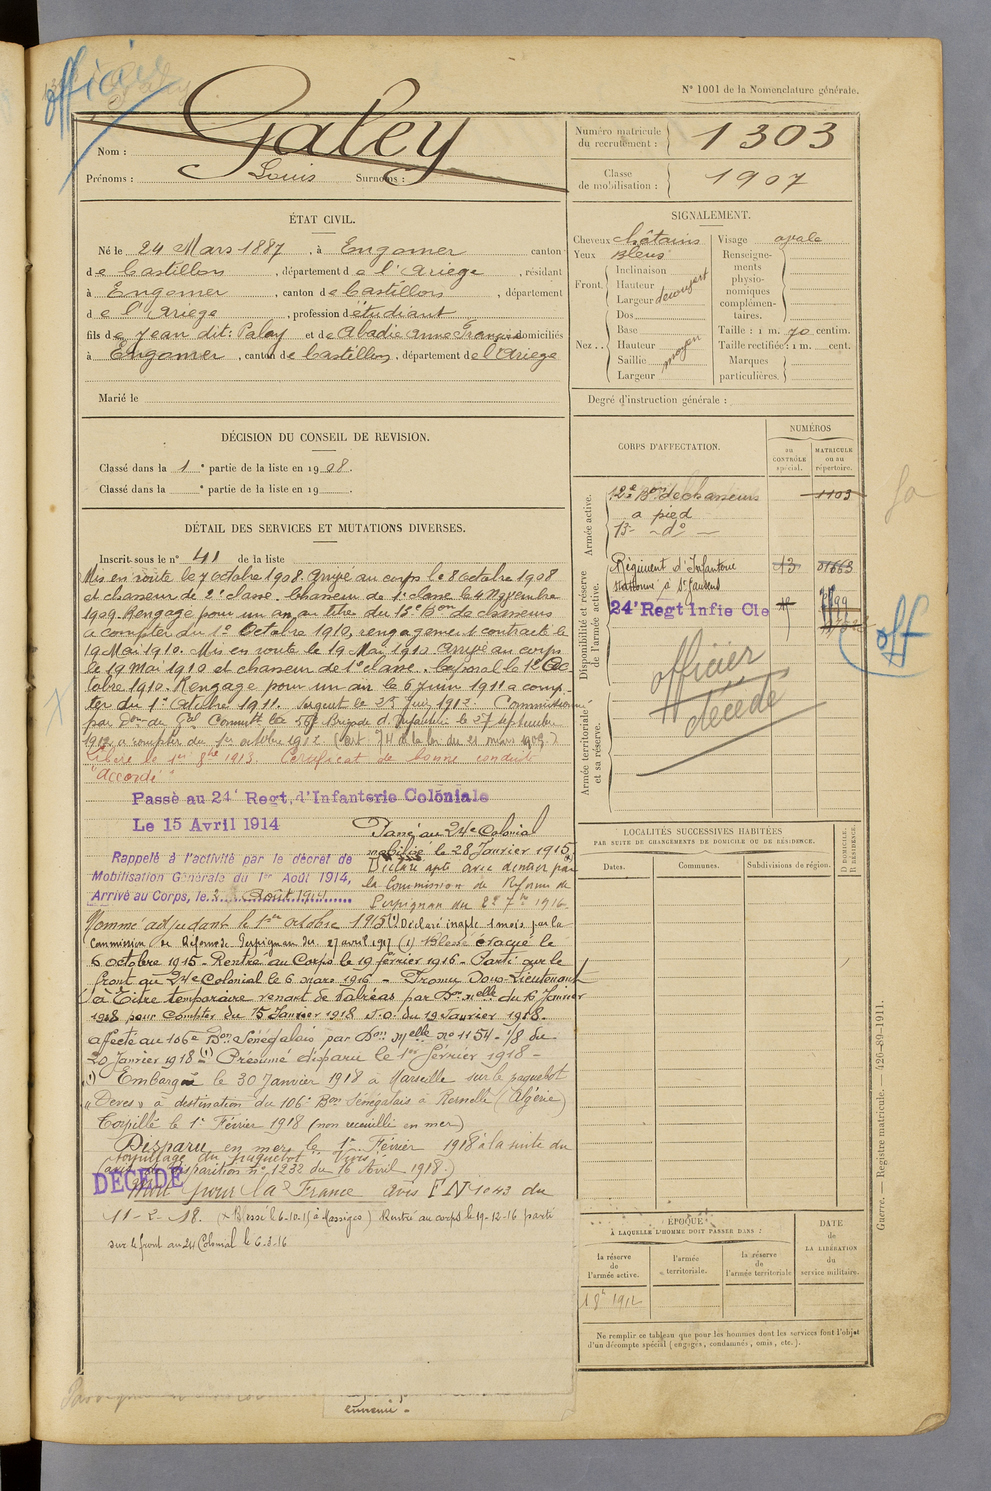 officier
N° 1001 de la Nomenclature générale.
Nom : Galey
Prénoms : Louis Surnoms :
Numéro matricule du recrutement : 1303
Classe de mobilisation : 1907
ÉTAT CIVIL.
Né le 24 Mars 1887, à Engomer canton
de Castillon, département de l'Ariege, résidant
à Engomer, canton de Castillon, département
de l'Ariege, profession d'étudiant
fils de Jean dit: Palay et de Abadie Anne Françoise domiciliés
à Engomer, canton de Castillon, département de l'Ariege
Marié le
SIGNALEMENT.
Cheveux châtains
Yeux Bleus
Front. Inclinaison
Hauteur
Largeur decouvert
Nez .. Dos
Base
Hauteur
Saillie moyen
Largeur
Visage ovale
Renseignements physionomiques complémentaires.
Taille : 1 m. 70 centim.
Taille rectifiée : 1 m. cent.
Marques particulières.
Degré d'instruction générale :
DÉCISION DU CONSEIL DE REVISION.
Classé dans la 1e partie de la liste en 1908.
Classé dans la e partie de la liste en 19 .
CORPS D'AFFECTATION.
NUMÉROS
au CONTRÔLE spécial.
MATRICULE ou au répertoire.
Armée active.
12e Bon de chasseurs 1103
a pied
13- -do-
Disponibilité et réserve de l'armée active.
Régiment d'Infanterie 13
stationné à St Gaudens
24e Regt Infie Cle
officier
décédé
Armée territoriale et sa réserve.
off
DÉTAIL DES SERVICES ET MUTATIONS DIVERSES.
Inscrit sous le n° 41 de la liste
Mis en route le 7 octobre 1908. Arrivé au corps le 8 octobre 1908
et chasseur de 2e classe. Chasseur de 1e classe le 4 Novembre
1909. Rengagé pour un an au titre du 13e Bon de chasseurs
a compter du 1e Octobre 1910, rengagement contracté le
19 Mai 1910. Mis en route le 19 Mai 1910 arrivé au corps
le 19 mai 1910 et chasseur de 1e classe. Caporal le 1e Oc
tobre 1910. Rengagé pour un an le 6 juin 1911 a comp-
ter du 1e Octobre 1911. Sergent le Juin 1912. Commission
par Don de Gal Commt la Brigade d'Infanterie le 27 septembre
1912 a compter du 1er octobre 1912 (art. 74 de la loi du 21 mars 1905.)
Libéré le 1er 8bre 1913. Certificat de bonne conduite
"Accordé"
Passé au 24e Regt. d'Infanterie Coloniale
Le 15 Avril 1914
Rappelé à l'activité par le décret de
Mobilisation Générale du 1er Août 1914,
Arrivé au Corps, le 3 Août 1914
Passé au 24e Colonial
mobilisé le 28 Janvier 1915
Déclaré apte avec dentier par
la Commission de Réforme de
Perpignan du 7bre 1916.
Nommé adjudant le 1er octobre 1915 (1) Déclaré inapte 1 mois par la
Commission de Réforme de Perpignan du 27 avril 1917 (1) Blessé évacué le
6 octobre 1915 - Rentré au Corps le 19 février 1916 - Parti sur le
front au 24e Colonial le 6 mars 1916 - Promu Sous-Lieutenant
à Titre temporaire venant de Valréas par Don Mlle du 16 Janvier
1918 pour compter du 15 Janvier 1918 J.O. du 19 Janvier 1918.
Affecté au 106e Bon Sénégalais par Don Mlle n° 1154-1/8 du
20 Janvier 1918 (1) Présumé disparu le 1er février 1918 -
(1) Embarqué le 30 Janvier 1918 à Marseille sur le paquebot
à destination du 106e Bon Sénégalais à (Algérie)
Torpillé le 1e Février 1918 (non recueilli en mer)
Disparu en mer le 1er Février 1918 à la suite du
torpillage du paquebot
(avis de disparition n° 1232 du 16 Avril 1918.)
DÉCÉDÉ
Mort pour la France avis FN 1043 du
11-2-18. (x Blessé le 6-10-15 à Massiges) Rentré au corps le 19-12-16 parti
sur le front au 24 Colonial le 6-3-16
LOCALITÉS SUCCESSIVES HABITÉES
PAR SUITE DE CHANGEMENTS DE DOMICILE OU DE RÉSIDENCE.
Dates. Communes. Subdivisions de région. D. DOMICILE. R. RÉSIDENCE.
ÉPOQUE
À LAQUELLE L'HOMME DOIT PASSER DANS :
la réserve de l'armée active.
l'armée territoriale.
la réserve de l'armée territoriale
DATE de LA LIBÉRATION du service militaire.
1 8e 1912
Ne remplir ce tableau que pour les hommes dont les services font l'objet
d'un décompte spécial (engagés, condamnés, omis, etc.).
Guerre. — Registre matricule. — 426-89-1911.